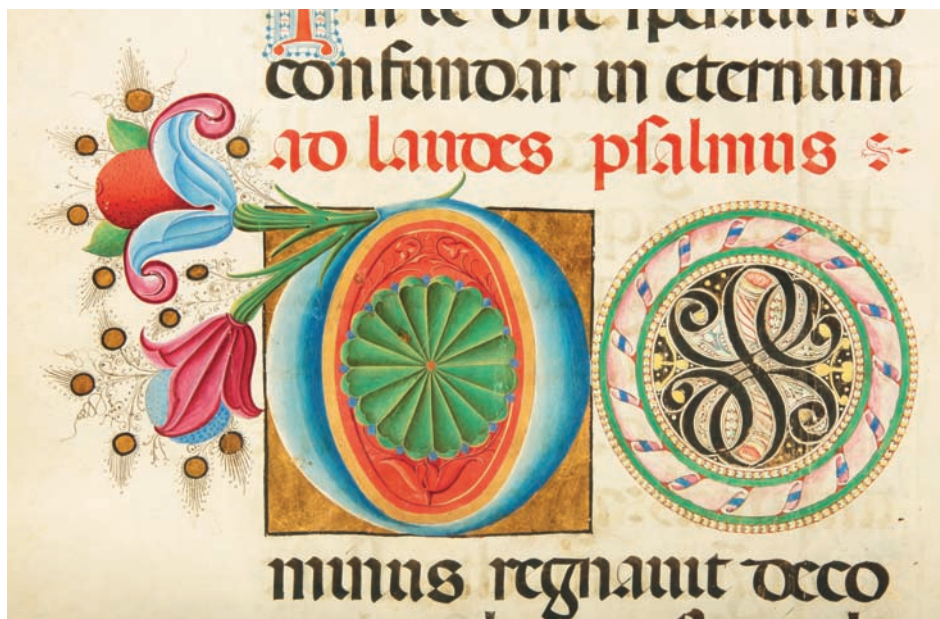 In te dne ſperaui no
confundar in eternum
ad laudes pſalmus
DO
minus regnauit deco